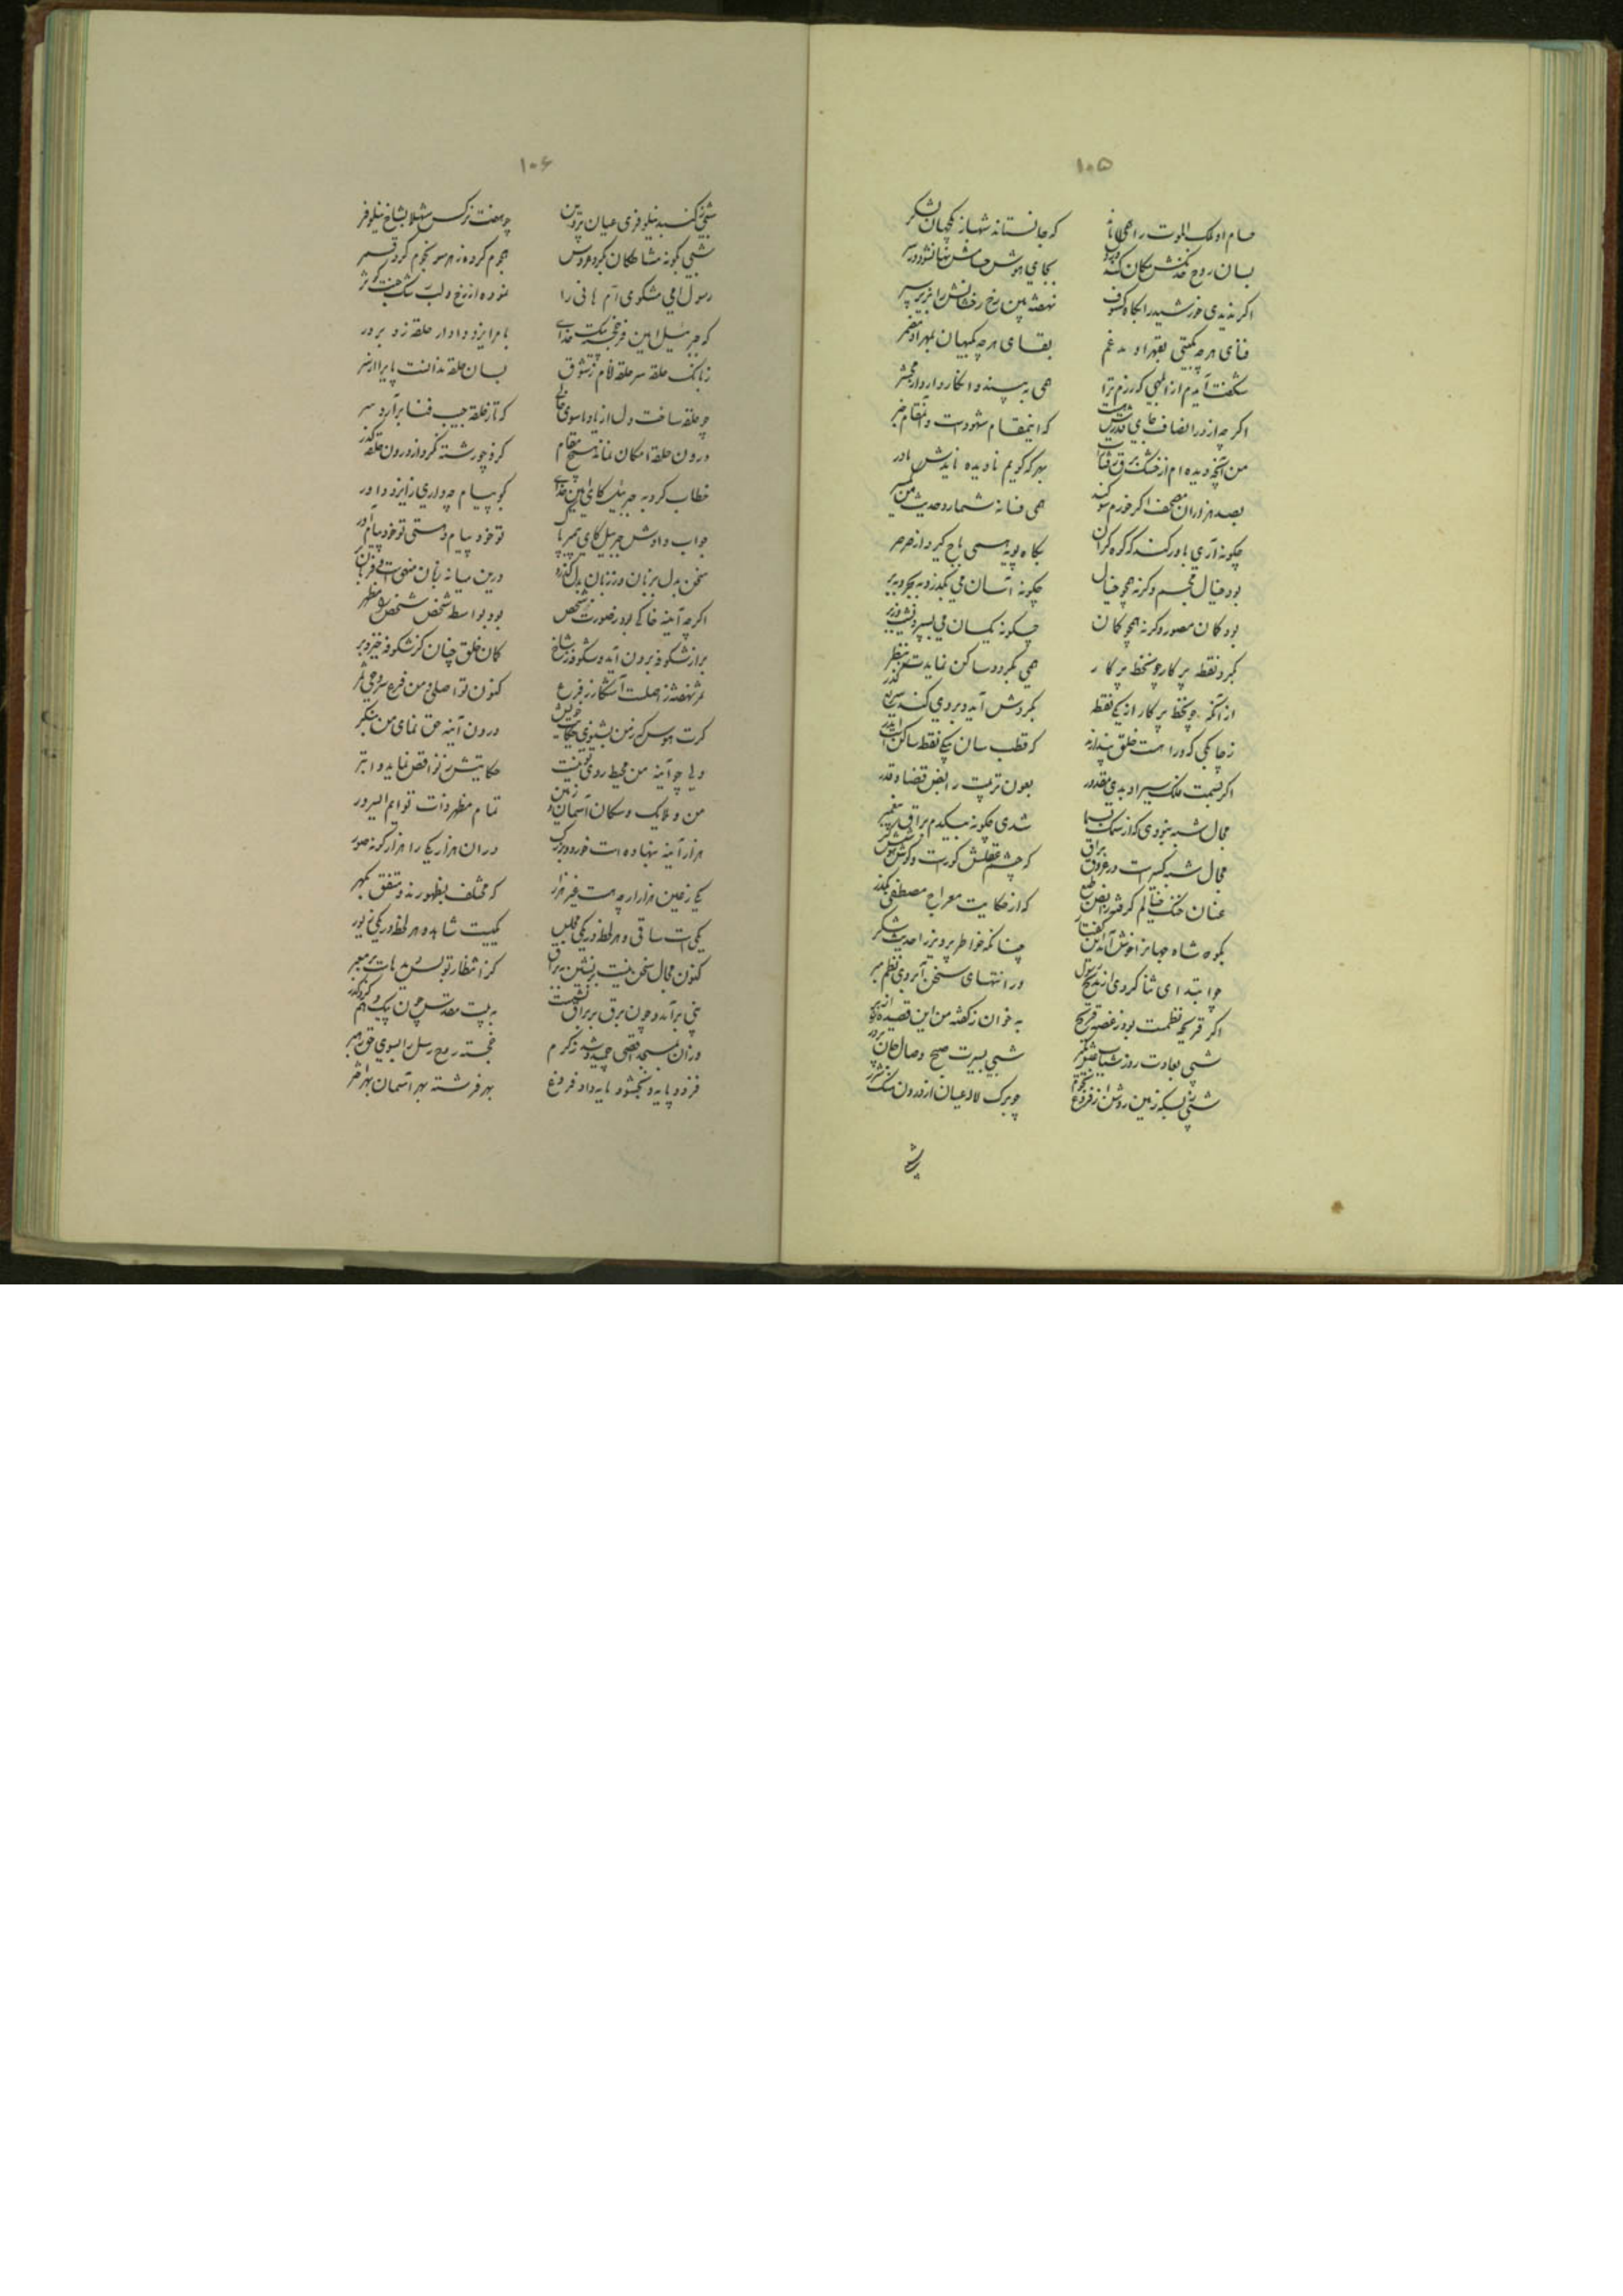 ۱۰۵
حسام او ملک الموت را همی ماند که جانستاند شهباز کیهان شکر
بسان روح که نقش مکان کند
اگر ندیدی خورشید را بگاه کسوف نهفته بین رخ رخشانش را بزیر سپر
فنای هر چه بگیتی بقهر او مدغم بقای هر چه بکیهان بمهر او مضمر
شگفت آیدم از ابلهی که رزم ترا همی به بیند و انکار دارد از محشر
اگر چه از در انصاف جای که این مقام شهودست و آن مقام خبر
من آنچه دیده ام از بهر که گویم نادیده نایدش باور
بصد هزاران مصحف اگر خورم سوگند همی فسانه شمارد حدیث من یکسر
چگونه آری باور کند که کره گران بگاه پویه همی باج گیرد از صرصر
بود خیال مجسم وگرنه همچو خیال چگونه آسان می بگذرد به بحر و ببر
بود گمان مصور وگرنه همچو گمان چگونه یکسان می بسپرد نشیب و زبر
بگرد نقطه پرگار چو خط پرگار همی بگردد و ساکن نمایدت بنظر
از آنکه چو خط پرگار از یکی نقطه بگردش آید و بروی کند سریع گذر
ز چابکی که ورا هست خلق پندارند که قطب سان بیکی نقطه ساکنست ایدر
اگر نه همت ملک سیر او بدی مقدور بعون تربیت رایض قضا و قدر
مجال شبه نبودی که از سمک بسما شدی چگونه بیکدم براق پیغمبر
مجال شبه کسیراست در عروج براق که چشم عقلش کورست و گوش هوشش کر
عنان خنگ خیالم گرفت رایض طبع که از حکایت معراج مصطفی بگذر
بگوه شاه جهانرا خوش آمد این گفتار چنانکه خواطر پرویز را حدیث شکر
چو ابتدای ثنا کردی از مدیح رسول در انتهای سخن آبروی نظم مبر
اگر قریحه نظمت بود ز غصه قریح به خوان ز گفته من این قصیده را از بر
شبی بعادت روز شباب شبی بسیرت صبح وصال جان پرور
شبی ز بسکه زمین روشن از فروغ نجوم چو برگ لاله عیان از درون سنگ شرر
۱۰۶
شبی ز گنبد نیلوفری عیان پروین چو هفت نرگس شهلا بشاخ نیلوفر
شبی بگونه مشاطگان بگرد عروس هجوم کرده ز هر سو نجوم گرد قمر
رسول امی مشکوی ام هانی را نموده از رخ و لب رشک جنت و کوثر
که جبرئیل امین فرخجسته پیک خدای بامر ایزد دادار حلقه زد بر در
ز بانک حلقه سر حلقه انام ز شوق بسان حلقه ندانست پایرا از سر
چو حلقه ساخت دل از یاد ماسوی خالی که تا ز حلقه جیب فنا برآرد سر
درون حلقه امکان نماند هیچ مقام کزو چو رشته نکرد از درون حلقه گذر
خطاب کرد به جبریل کای امین خدای گو پیام چه داری ز ایزد داور
جواب دادش جبریل کای پیمبر پاک تو خود پیام دهستی تو خود پیام آور
سخن ز دل بزبان و ز زبان بدل گذرد درین میانه زبان منهیست فرمان بر
اگر چه آینه حاکی بود ز صورت شخص بود بواسطه شخص شخص را مظهر
براز شکوفه برون آید و شکوفه ز شاخ گمان خلق چنان کز شکوفه خیزد بر
ثمر نهفته ز اصلست آشکار ز فرع کنون تو اصلی و من فرع و وحی ثمر
گرت هوس که ز من بشنوی حکایت خویش درون آینه حق نمای من بنگر
ولی چو آینه من محیط روی تو نیست حکایتش ز تو ناقص نماید و ابتر
من و ملایک و سکان آسمان و زمین تمام مظهر ذات توایم ای سرور
هزار آینه بنهاده است خورد و بزرگ در آن هزار یکی را هزار گونه صور
یکی ز عین هزار ار چه هست غیر هزار که مختلف بظهورند و متفق بگهر
یکیست ساقی و هر لحظه در یکی مجلس یکیست شاهد و هر لحظه در یکی زیور
کنون مجال سخن نیست بر نشین به براق کز انتظار تو بس دیدهاست بر معبر
نبی برآمد و چون برق بر براق نشست به بیت مقدس چون پیک وهم کرد گذر
وز آن بمسجد اقصی چمید و شد ز کرم خجسته روح رسل را بسوی حق رهبر
فزود پایه و بخشود مایه داد فروغ بهر فرشته بهر آسمان بهر اختر